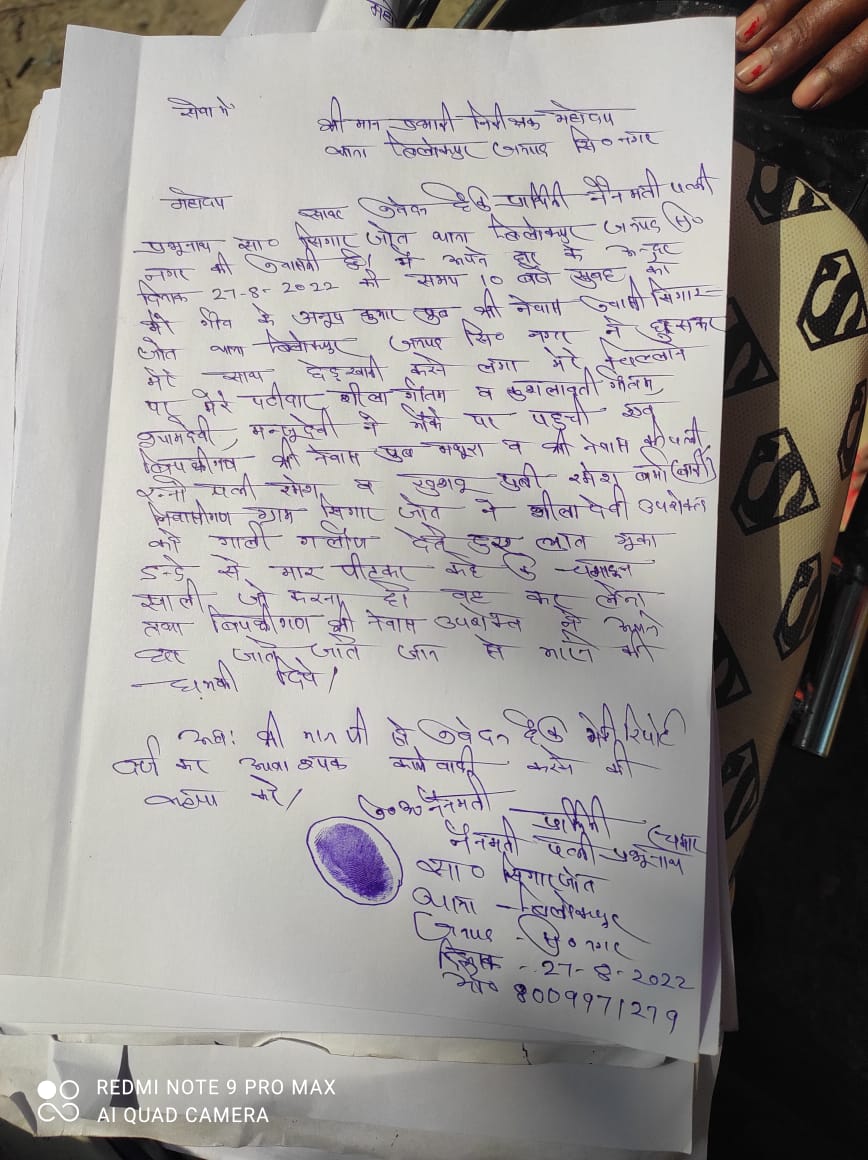 सेवा में
श्री मान प्रभारी निरीक्षक महोदय
थाना त्रिलोकपुर जनपद सि० नगर
महोदय सादर निवेदन है कि प्रार्थिनी नैनमती पत्नी
प्रभूनाथ सा० सिंगार जोत थाना त्रिलोकपुर जनपद सि०
नगर की निवासिनी है। मैं अपने घर के अन्दर
दिनांक 27-8-2022 को समय 10 बजे सुबह का
मेरे गाँव के अनूप कुमार पुत्र श्री नेवास निवासी सिंगार
जोत थाना त्रिलोकपुर जनपद सि० नगर ने घुसकर
मेरे साथ छेड़खानी करने लगा मेरे चिल्लाने
पर मेरे पटीदार शीला गौतम व कुशलावती गौतम,
श्यामदेवी, मन्जूदेवी ने मौके पर पहुची
विपक्षीगण श्री नेवास पुत्र मथुरा व श्री नेवास की पत्नी
पत्नी रमेश व खुशबू पुत्री रमेश
निवासीगण ग्राम सिंगार जोत ने शीला देवी उपरोक्त
को गाली गलौज देते हुए लात मुका
डन्डे से मार पीटकर कहे कि चमाइन
साली जो करना हो वह कर लेना
तथा विपक्षीगण श्री नेवास उपरोक्त ने अपने
घर जाते जाते जान से मारने की
धमकी दिये।
अतः श्री मान जी से निवेदन है कि मेरी रिपोर्ट
दर्ज कर आवश्यक कार्यवाही करने की
कृपा करें।
नि०अ० नैनमती
प्रार्थिनी
नैनमती पत्नी प्रभूनाथ चमार
सा० सिंगारजोत
थाना - त्रिलोकपुर
जनपद - सि० नगर
दिनांक - 27-8-2022
मो० 8009971279
REDMI NOTE 9 PRO MAX
AI QUAD CAMERA